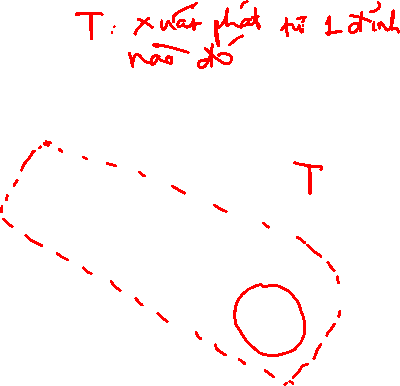 T: xuất phát từ 1 đỉnh
nào đó
T